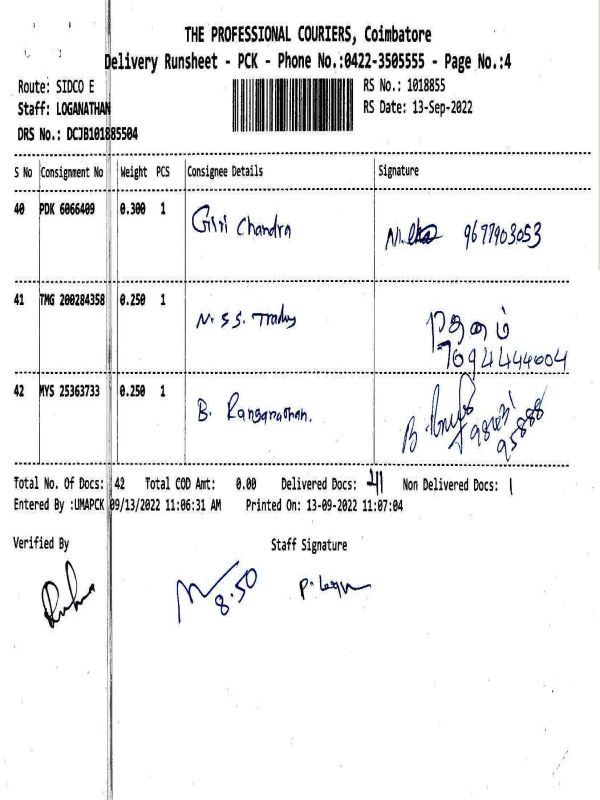 THE PROFESSIONAL COURIERS, Coimbatore
Delivery Runsheet - PCK - Phone No.:0422-3505555 - Page No.:4
Route: SIDCO E RS No.: 1018855
Staff: LOGANATHAN RS Date: 13-Sep-2022
DRS No.: DCJB101885504
S No Consignment No Weight PCS Consignee Details Signature
40 PDK 6066409 0.300 1 Giri Chandra 9677903053
41 TMG 200284358 0.250 1 N. S S. Trading
7094444004
42 MYS 25363733 0.250 1 B. Ranganathan.
Total No. Of Docs: 42 Total COD Amt: 0.00 Delivered Docs: 41 Non Delivered Docs: 1
Entered By :UMAPCK 09/13/2022 11:06:31 AM Printed On: 13-09-2022 11:07:04
Verified By Staff Signature
8.50